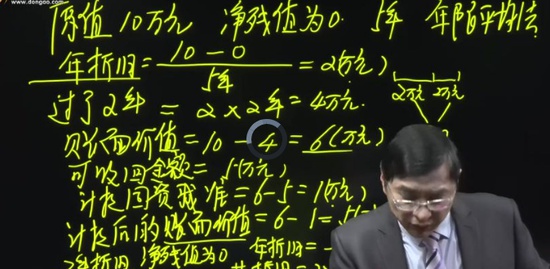 www.dongao.com
原值10万元 净残值为0. 5年 年限平均法
年折旧=10-0/5年=2(万元)
过了2年=2×2年=4万元. 2万元 2万元
则账面价值=10-4=6(万元)
可收回金额=5(万元)
计提固资减准=6-5=1(万元)
计提后的账面价值=6-1=5
净残值为0 年折旧=